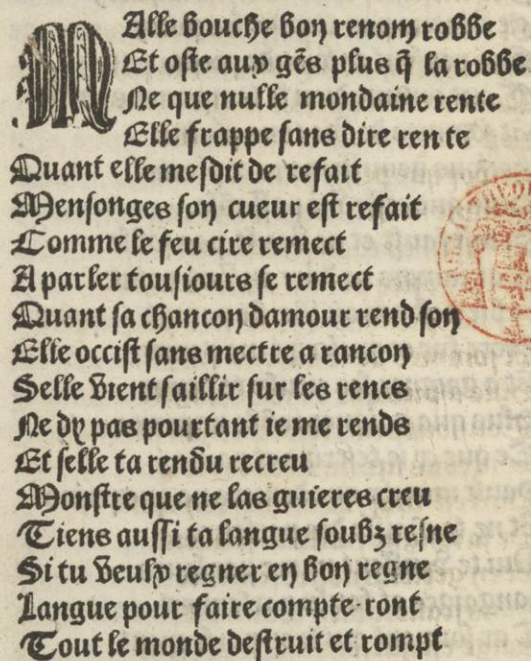 Malle bouche bon renom robbe
Et oste aux gẽs plus q̃ la robbe
Ne que nulle mondaine rente
Elle frappe sans dire ren te
Quant elle mesdit de refait
Mensonges son cueur est refait
Comme le feu cire remect
A parler tousiours se remect
Quant sa chancon damour rend son
Elle occist sans mectre a rancon
Selle vient saillir sur les rencs
Ne dy pas pourtant ie me rends
Et selle ta rendu recreu
Monstre que ne las guieres creu
Tiens aussi ta langue soubz resne
Si tu veulx regner en bon regne
Langue pour faire compte ront
Tout le monde destruit et rompt